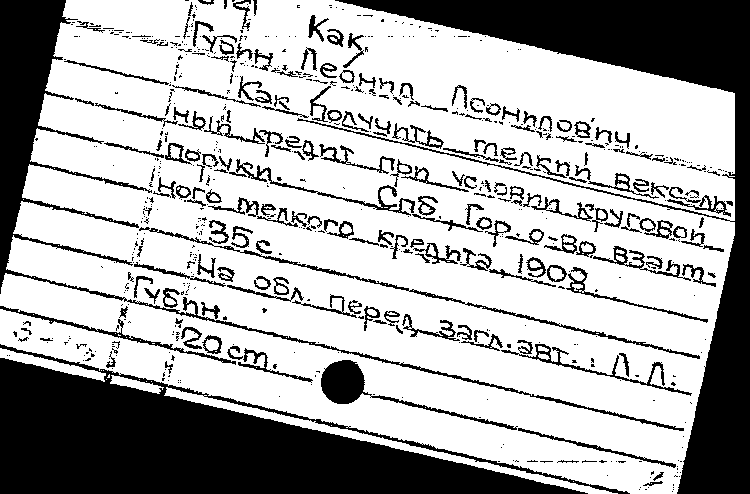 Как
Губин, Леонид Леонидович.
Как получить мелкий вексель-
ный кредит при условии круговой
поруки. Спб., Гор. о-во взаим-
ного мелкого кредита, 1908.
35 с.
На обл. перед загл. авт.: Л.Л.
Губин.
20 cm.